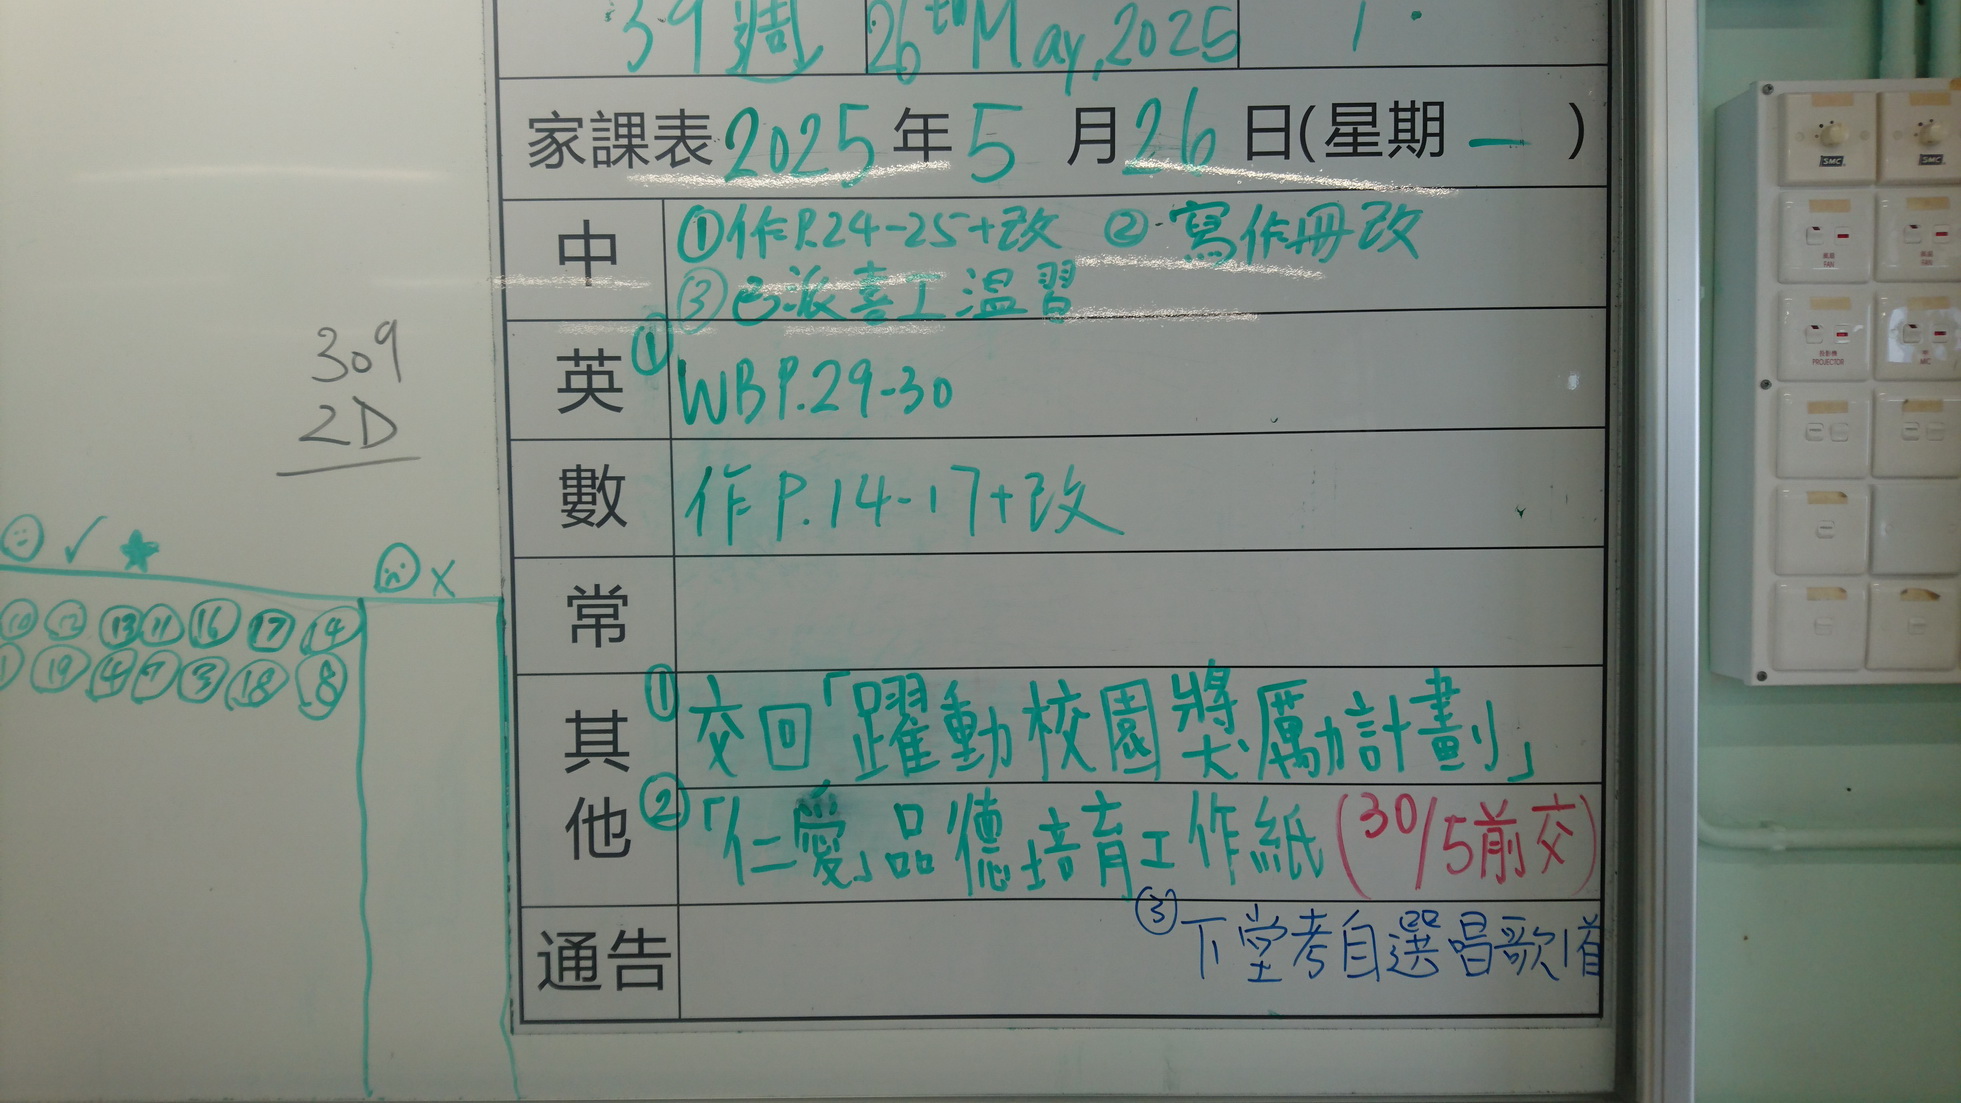 39週 26th May, 2025 1
家課表 2025 年 5 月 26 日(星期 一 )
中 ①作P.24-25+改 ②寫作冊改
③已派喜工溫習
英 ① WB P.29-30
數 作P.14-17+改
常
其他 ①交回「躍動校園獎勵計劃」
②「仁愛」品德培育工作紙(30/5前交)
通告 ③下堂考自選唱歌1首
309
2D
✓ ★ X
10 12 13 11 16 17 14
1 19 4 7 3 18 8
SMC SMC
FAN FAN
PROJECTOR MIC